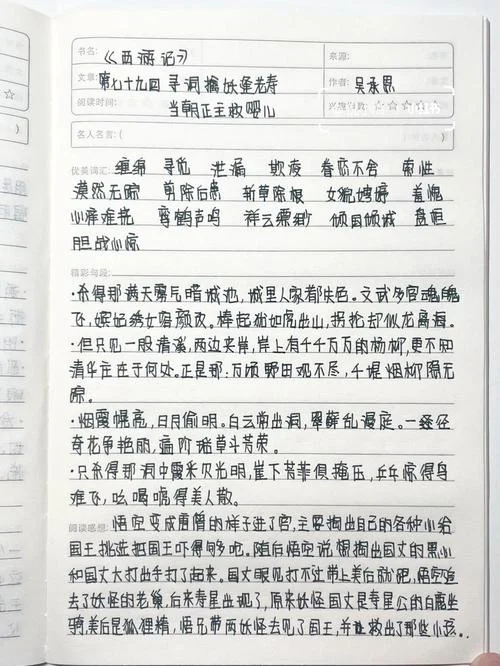 书名: 《西游记》 来源:
文章: 第七十九回 寻洞擒妖逢老寿 作者: 吴承恩
阅读时间: 当朝正主救婴儿
名人名言:(
优美词汇: 缠绵 寻觅 泄漏 欺 眷恋不舍 索性
漠然无踪 剪除后患 斩草除根 女貌娉婷 羞愧
心痒难挠 鸾鹤声鸣 祥云缥缈 倾国倾城 盘桓
胆战心惊
精彩句段:
·杀得那满天雾气暗城池,城里人家都失色。文武多官魂魄
飞,嫔妃绣女容颜改。棒起犹如虎出山,拐抡却似龙离海。
·但只见一股清溪,两边夹岸,岸上有千千万万的杨柳,更不知
清华庄在于何处。正是那:万顷野田观不尽,千堤烟柳隐无
踪。
·烟霞幌亮,日月偷明。白云常出洞,翠藓乱漫庭。一径
奇花争艳丽,遍阶瑶草斗芳荣。
·只杀得那洞中霞采欠光明,崖下芳菲俱掩压,乒乓惊得鸟
难飞,吆喝唬得美人散。
阅读感想: 悟空变成唐僧的样子进了宫,主要掏出自己的各种心给
国王挑选把国王吓得够呛。随后悟空说想掏出国丈的黑心
和国丈大打出手打了起来。国丈眼见打不过带上美后就跑,悟空追
去了妖怪的老巢,后来寿星出现了,原来妖怪国丈是寿星公的白鹿坐
骑,美后是狐狸精,悟兄带两妖怪去见了国王,并让救出了那些小孩。